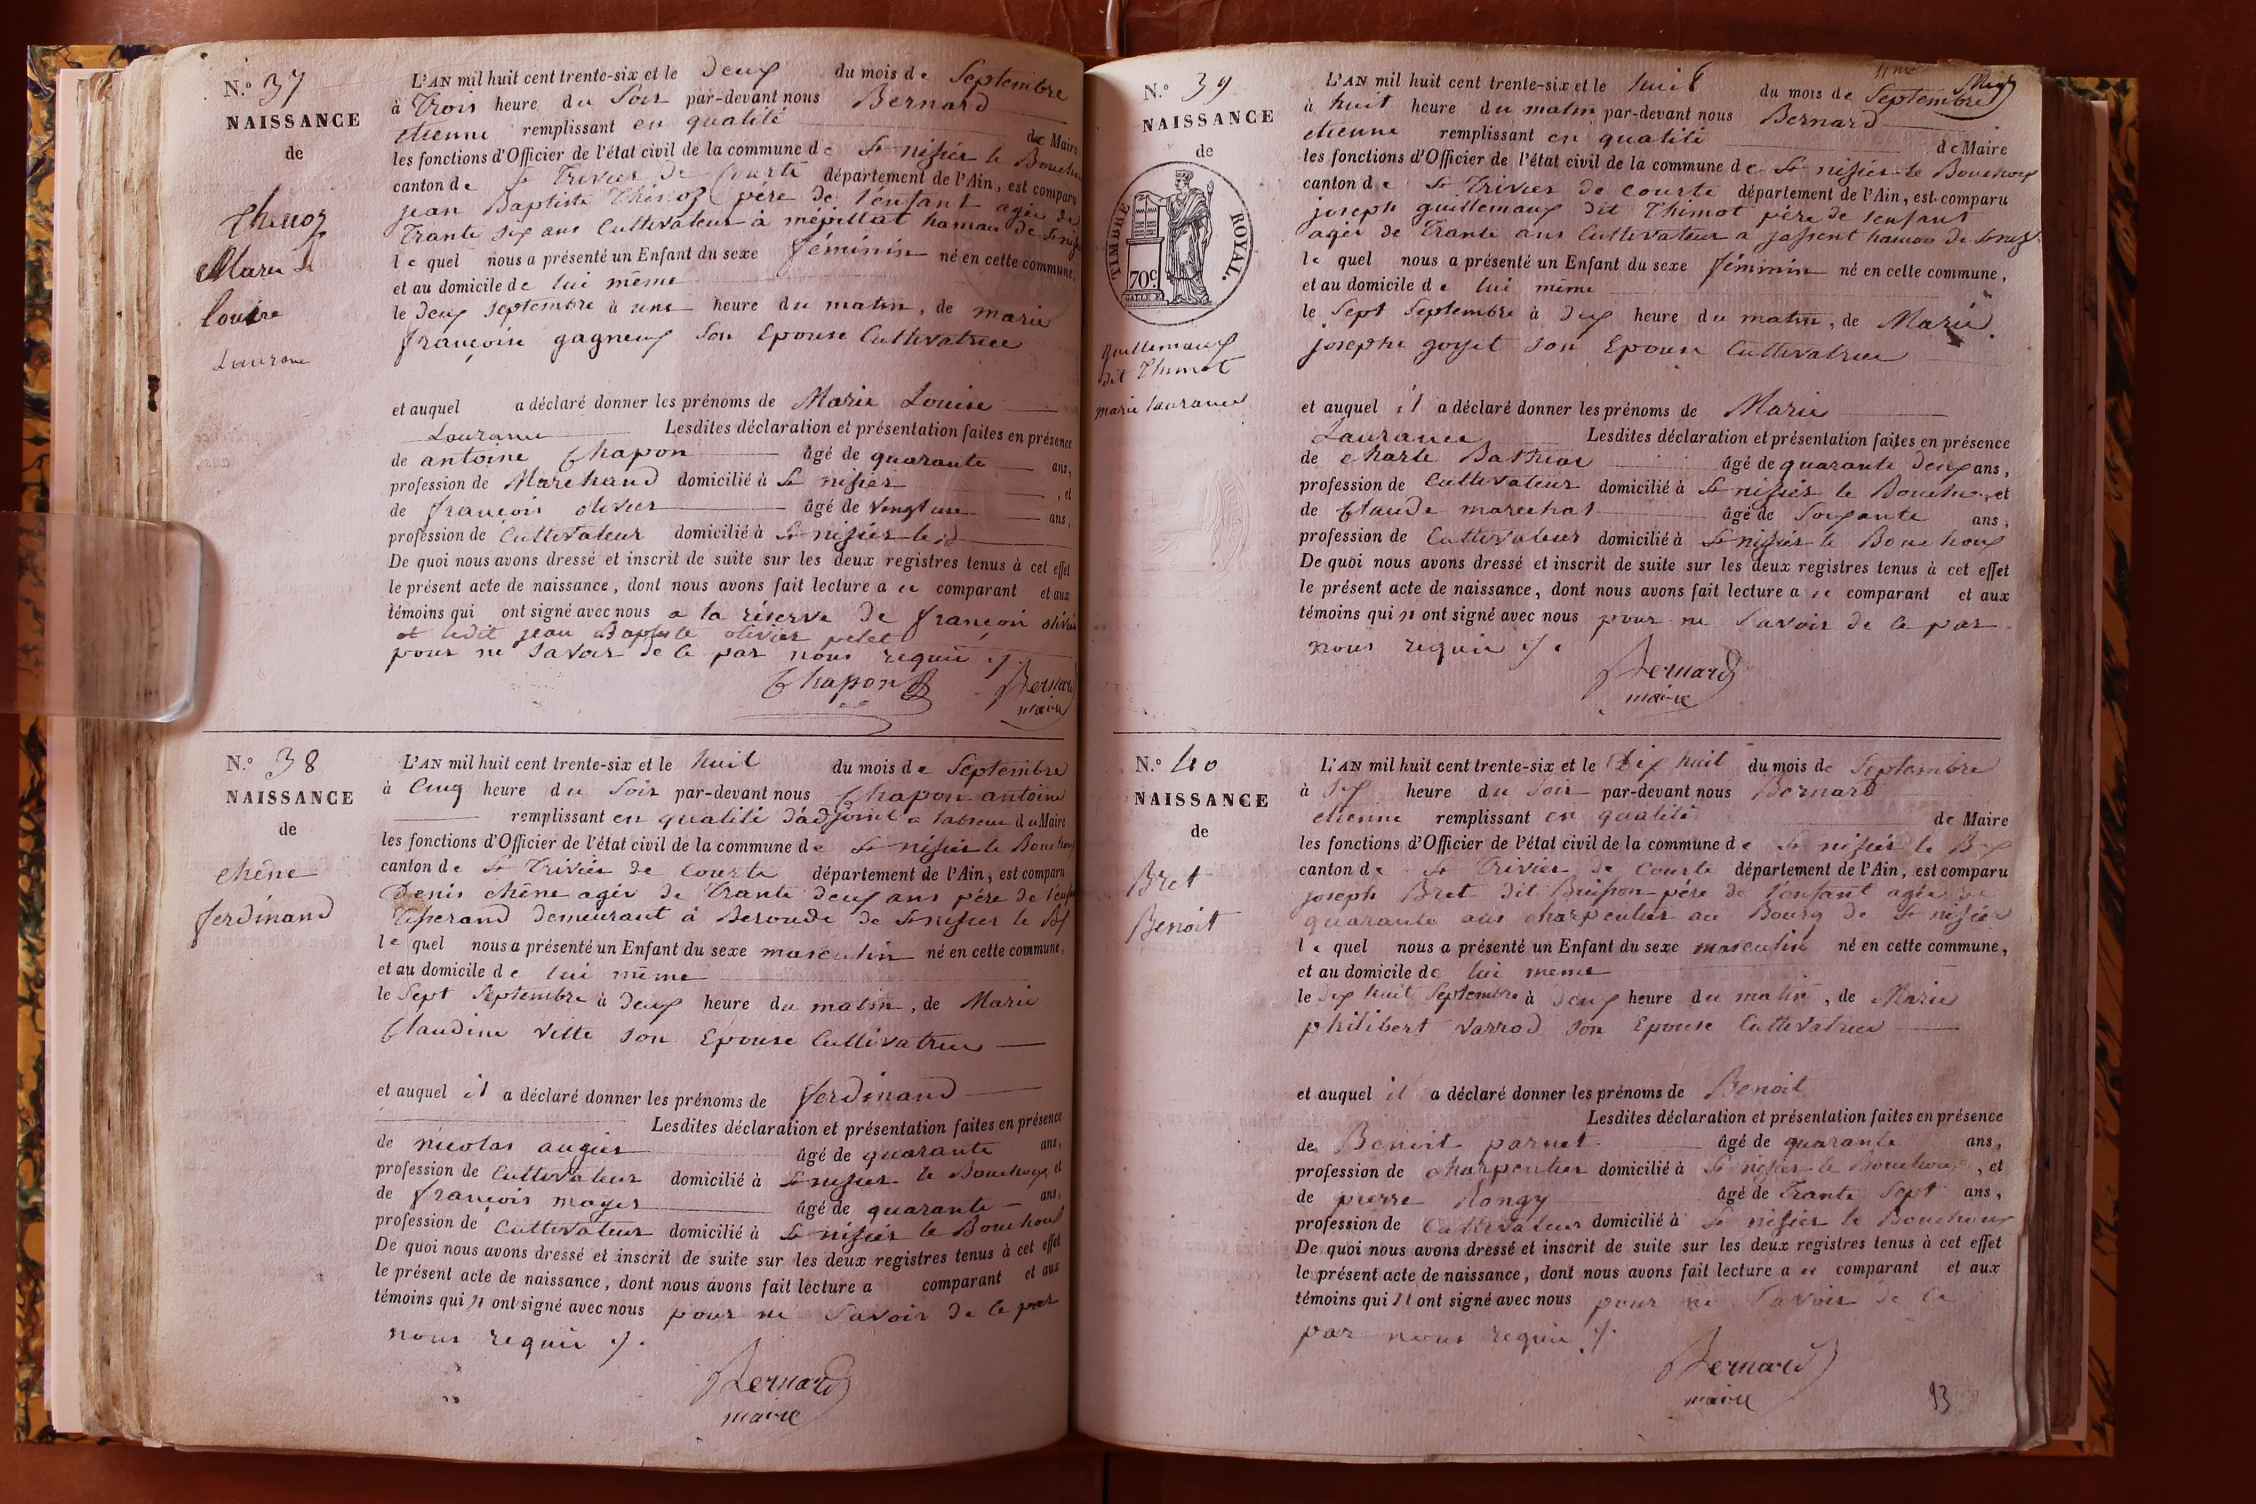 N.º 37
NAISSANCE
de
Thenoz
Marie
Louise
Laurence
L'AN mil huit cent trente-six et le Deux du mois de Septembre
à Trois heure du Soir par-devant nous Bernard
etienne remplissant en qualité de Maire
les fonctions d'Officier de l'état civil de la commune de St nisier le Bouchoux
canton de St Trivier de Courte département de l'Ain, est comparu
jean Baptiste Thenoz père de l'enfant agée de
Trante six ans Cultivateur à mépillat hamau de St nisier
le quel nous a présenté un Enfant du sexe féminin né en cette commune,
et au domicile de lui même
le Deux Septembre à une heure du matin, de marie
françoise gagneux Son Epouse Cultivatrice
et auquel a déclaré donner les prénoms de Marie Louise
Laurance Lesdites déclaration et présentation faites en présence
de antoine Chapon âgé de quarante ans,
profession de Marchand domicilié à St nisier , et
de françois olivier âgé de vingt une ans,
profession de Cultivateur domicilié à St nisier le
De quoi nous avons dressé et inscrit de suite sur les deux registres tenus à cet effet
le présent acte de naissance, dont nous avons fait lecture a ce comparant et aux
témoins qui ont signé avec nous a la réserve de françois olivier
et ledit jean Baptiste olivier
pour ne Savoir de ce par nous requis ./.
Chapon Bernard
maire
N.º 38
NAISSANCE
de
chêne
ferdinand
L'AN mil huit cent trente-six et le huit du mois de Septembre
à Cinq heure du Soir par-devant nous Chapon antoine
remplissant en qualité d'adjoint a l'absence du Maire
les fonctions d'Officier de l'état civil de la commune de St nisier le Bouchoux
canton de St Trivier de Courte département de l'Ain, est comparu
Denis chêne agée de Trante deux ans père de l'enfant
Tisserand demeurant à Beroude de St nisier le Bx
le quel nous a présenté un Enfant du sexe masculin né en cette commune,
et au domicile de lui même
le Sept Septembre à Deux heure du matin, de Marie
Claudine Vette Son Epouse Cultivatrice
et auquel il a déclaré donner les prénoms de ferdinand
Lesdites déclaration et présentation faites en présence
de nicolas augier âgé de quarante ans,
profession de Cultivateur domicilié à St nisier le Bouchoux, et
de françois moyer âgé de quarante ans,
profession de Cultivateur domicilié à St nisier le Bouchoux
De quoi nous avons dressé et inscrit de suite sur les deux registres tenus à cet effet
le présent acte de naissance, dont nous avons fait lecture a comparant et aux
témoins qui n ont signé avec nous pour ne Savoir de ce par
nous requis ./.
Bernard
maire
N.º 39
NAISSANCE
de
TIMBRE ROYAL.
70c.
Guillemaux
dit Thimot
marie laurance
L'AN mil huit cent trente-six et le huit du mois de Septembre
à huit heure du matin par-devant nous Bernard
etienne remplissant en qualité de Maire
les fonctions d'Officier de l'état civil de la commune de St nisier le Bouchoux
canton de St Trivier de Courte département de l'Ain, est comparu
joseph guillemaux dit Thimot père de l'enfant
agée de Trante ans Cultivateur a jassent hamau de St nizr
le quel nous a présenté un Enfant du sexe féminin né en cette commune,
et au domicile de lui même
le Sept Septembre à Deux heure du matin, de Marie
josephe goyet Son Epouse Cultivatrice
et auquel il a déclaré donner les prénoms de Marie
Laurance Lesdites déclaration et présentation faites en présence
de charle âgé de quarante Deux ans,
profession de Cultivateur domicilié à St nisier le Bouchoux, et
de Claude marechal âgé de Soixante ans,
profession de Cultivateur domicilié à St nisier le Bouchoux
De quoi nous avons dressé et inscrit de suite sur les deux registres tenus à cet effet
le présent acte de naissance, dont nous avons fait lecture a ce comparant et aux
témoins qui n ont signé avec nous pour ne Savoir de ce par
nous requis ./.
Bernard
maire
N.º 40
NAISSANCE
de
Bret
Benoit
L'AN mil huit cent trente-six et le Dix huit du mois de Septembre
à Six heure du Soir par-devant nous Bernard
etienne remplissant en qualité de Maire
les fonctions d'Officier de l'état civil de la commune de St nisier le Bx
canton de St Trivier de Courte département de l'Ain, est comparu
joseph Bret dit Buisson père de l'enfant agée de
quarante ans charpentier au Bourg de St nisier
le quel nous a présenté un Enfant du sexe masculin né en cette commune,
et au domicile de lui meme
le Dix huit Septembre à Deux heure du matin, de Marie
philibert Varrod Son Epouse Cultivatrice
et auquel il a déclaré donner les prénoms de Benoit
Lesdites déclaration et présentation faites en présence
de Benoit parnet âgé de quarante ans,
profession de charpentier domicilié à St nisier le Bouchoux, et
de pierre Rongy âgé de Trante Sept ans,
profession de Cultivateur domicilié à St nisier le Bouchoux
De quoi nous avons dressé et inscrit de suite sur les deux registres tenus à cet effet
le présent acte de naissance, dont nous avons fait lecture a ce comparant et aux
témoins qui n ont signé avec nous pour ne Savoir de ce
par nous requis ./.
Bernard
maire
93